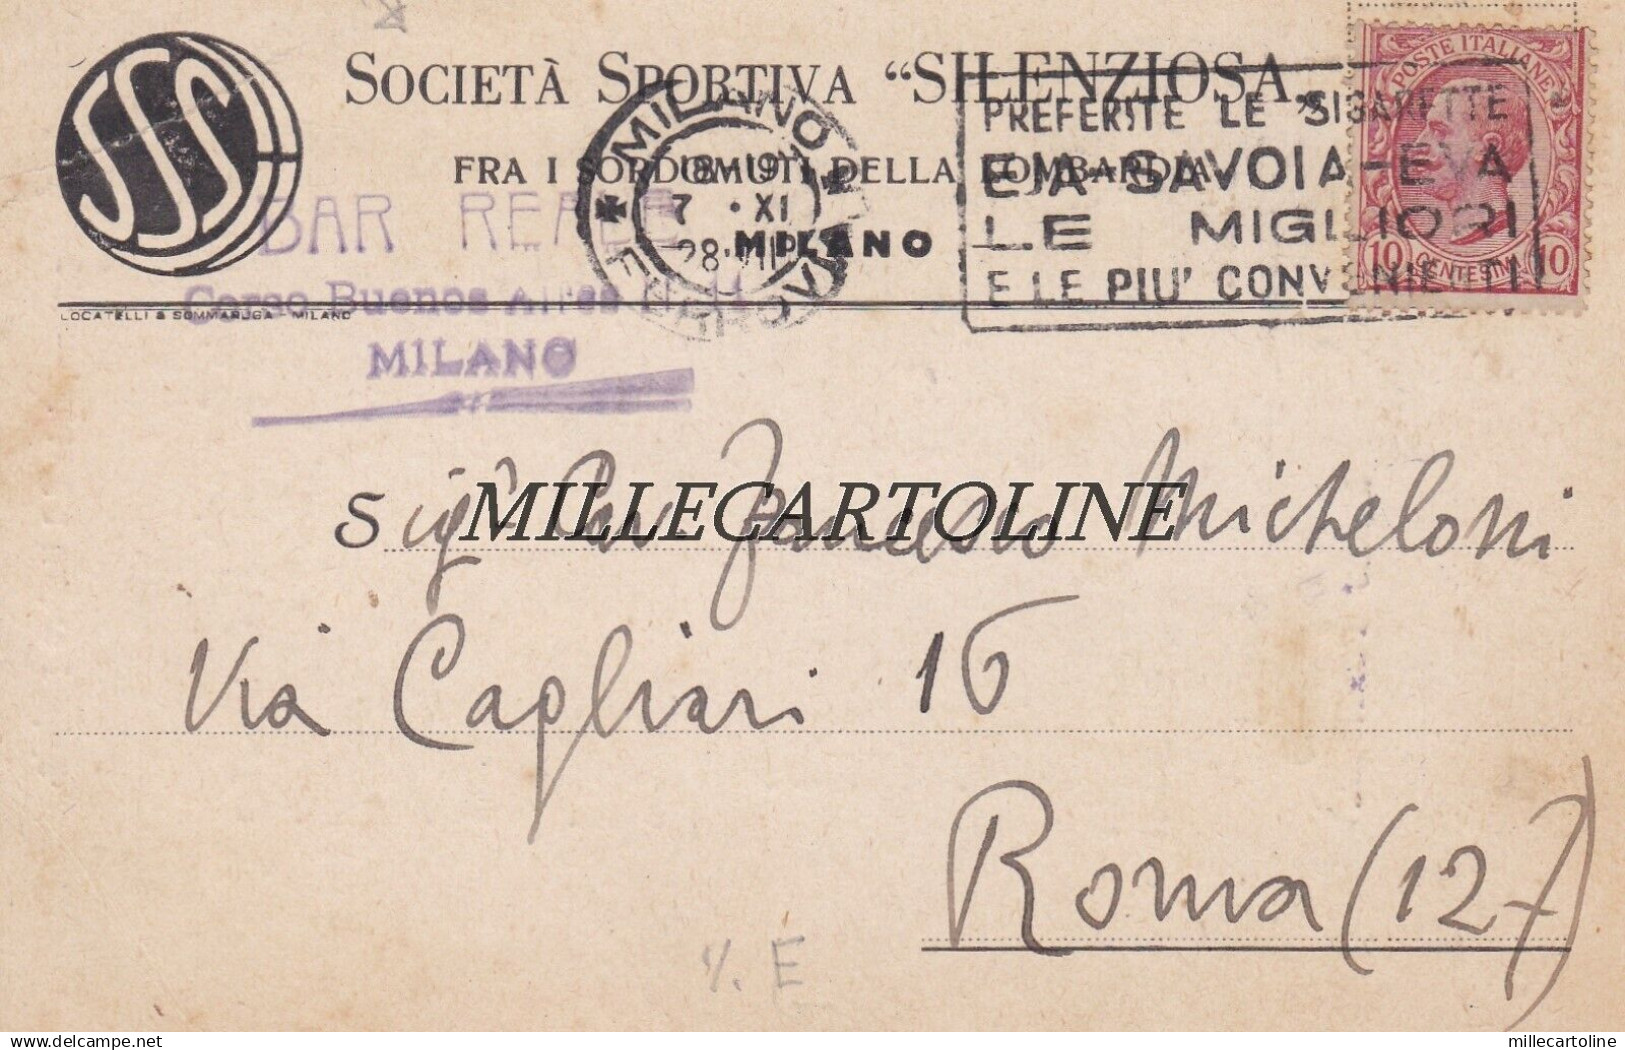 SSS
SOCIETÀ SPORTIVA “SILENZIOSA„
FRA I SORDOMUTI DELLA LOMBARDIA
MILANO
LOCATELLI & SOMMARUGA - MILANO
BAR REALE
Corso Buenos Aires N.
MILANO
MILANO
FERROVIA
18-19
7 · XI
28·VII
PREFERITE LE SIGARETTE
EJA-SAVOIA-EVA
LE MIGLIORI
E LE PIU' CONVENIENTI
POSTE ITALIANE
10 CENTESIMI 10
Sigr Cav Francesco Micheloni
Via Cagliari 16
Roma (127)
MILLECARTOLINE
delcampe.net
millecartoline